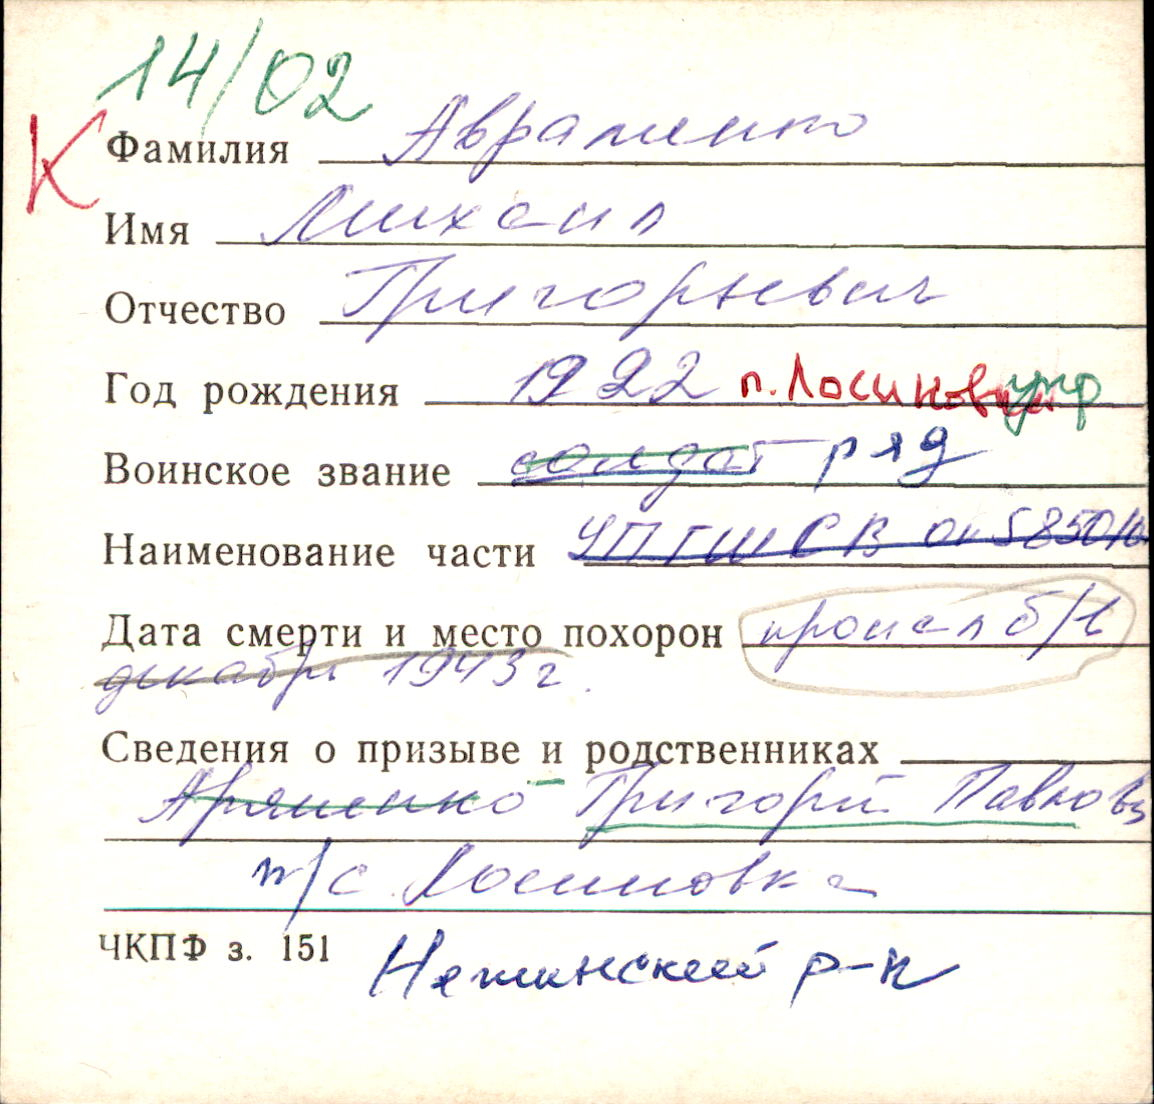 14/02
К
Фамилия Авраменко
Имя Михаил
Отчество Григорьевич
Год рождения 1922 п. Лосиновка укр
Воинское звание солдат ряд
Наименование части УПГШСВ 58501
Дата смерти и место похорон пропал б/в
декабрь 1943 г.
Сведения о призыве и родственниках
Григорий Павлов
п/с Лосиновка
ЧКПФ з. 151 Нежинский р-н